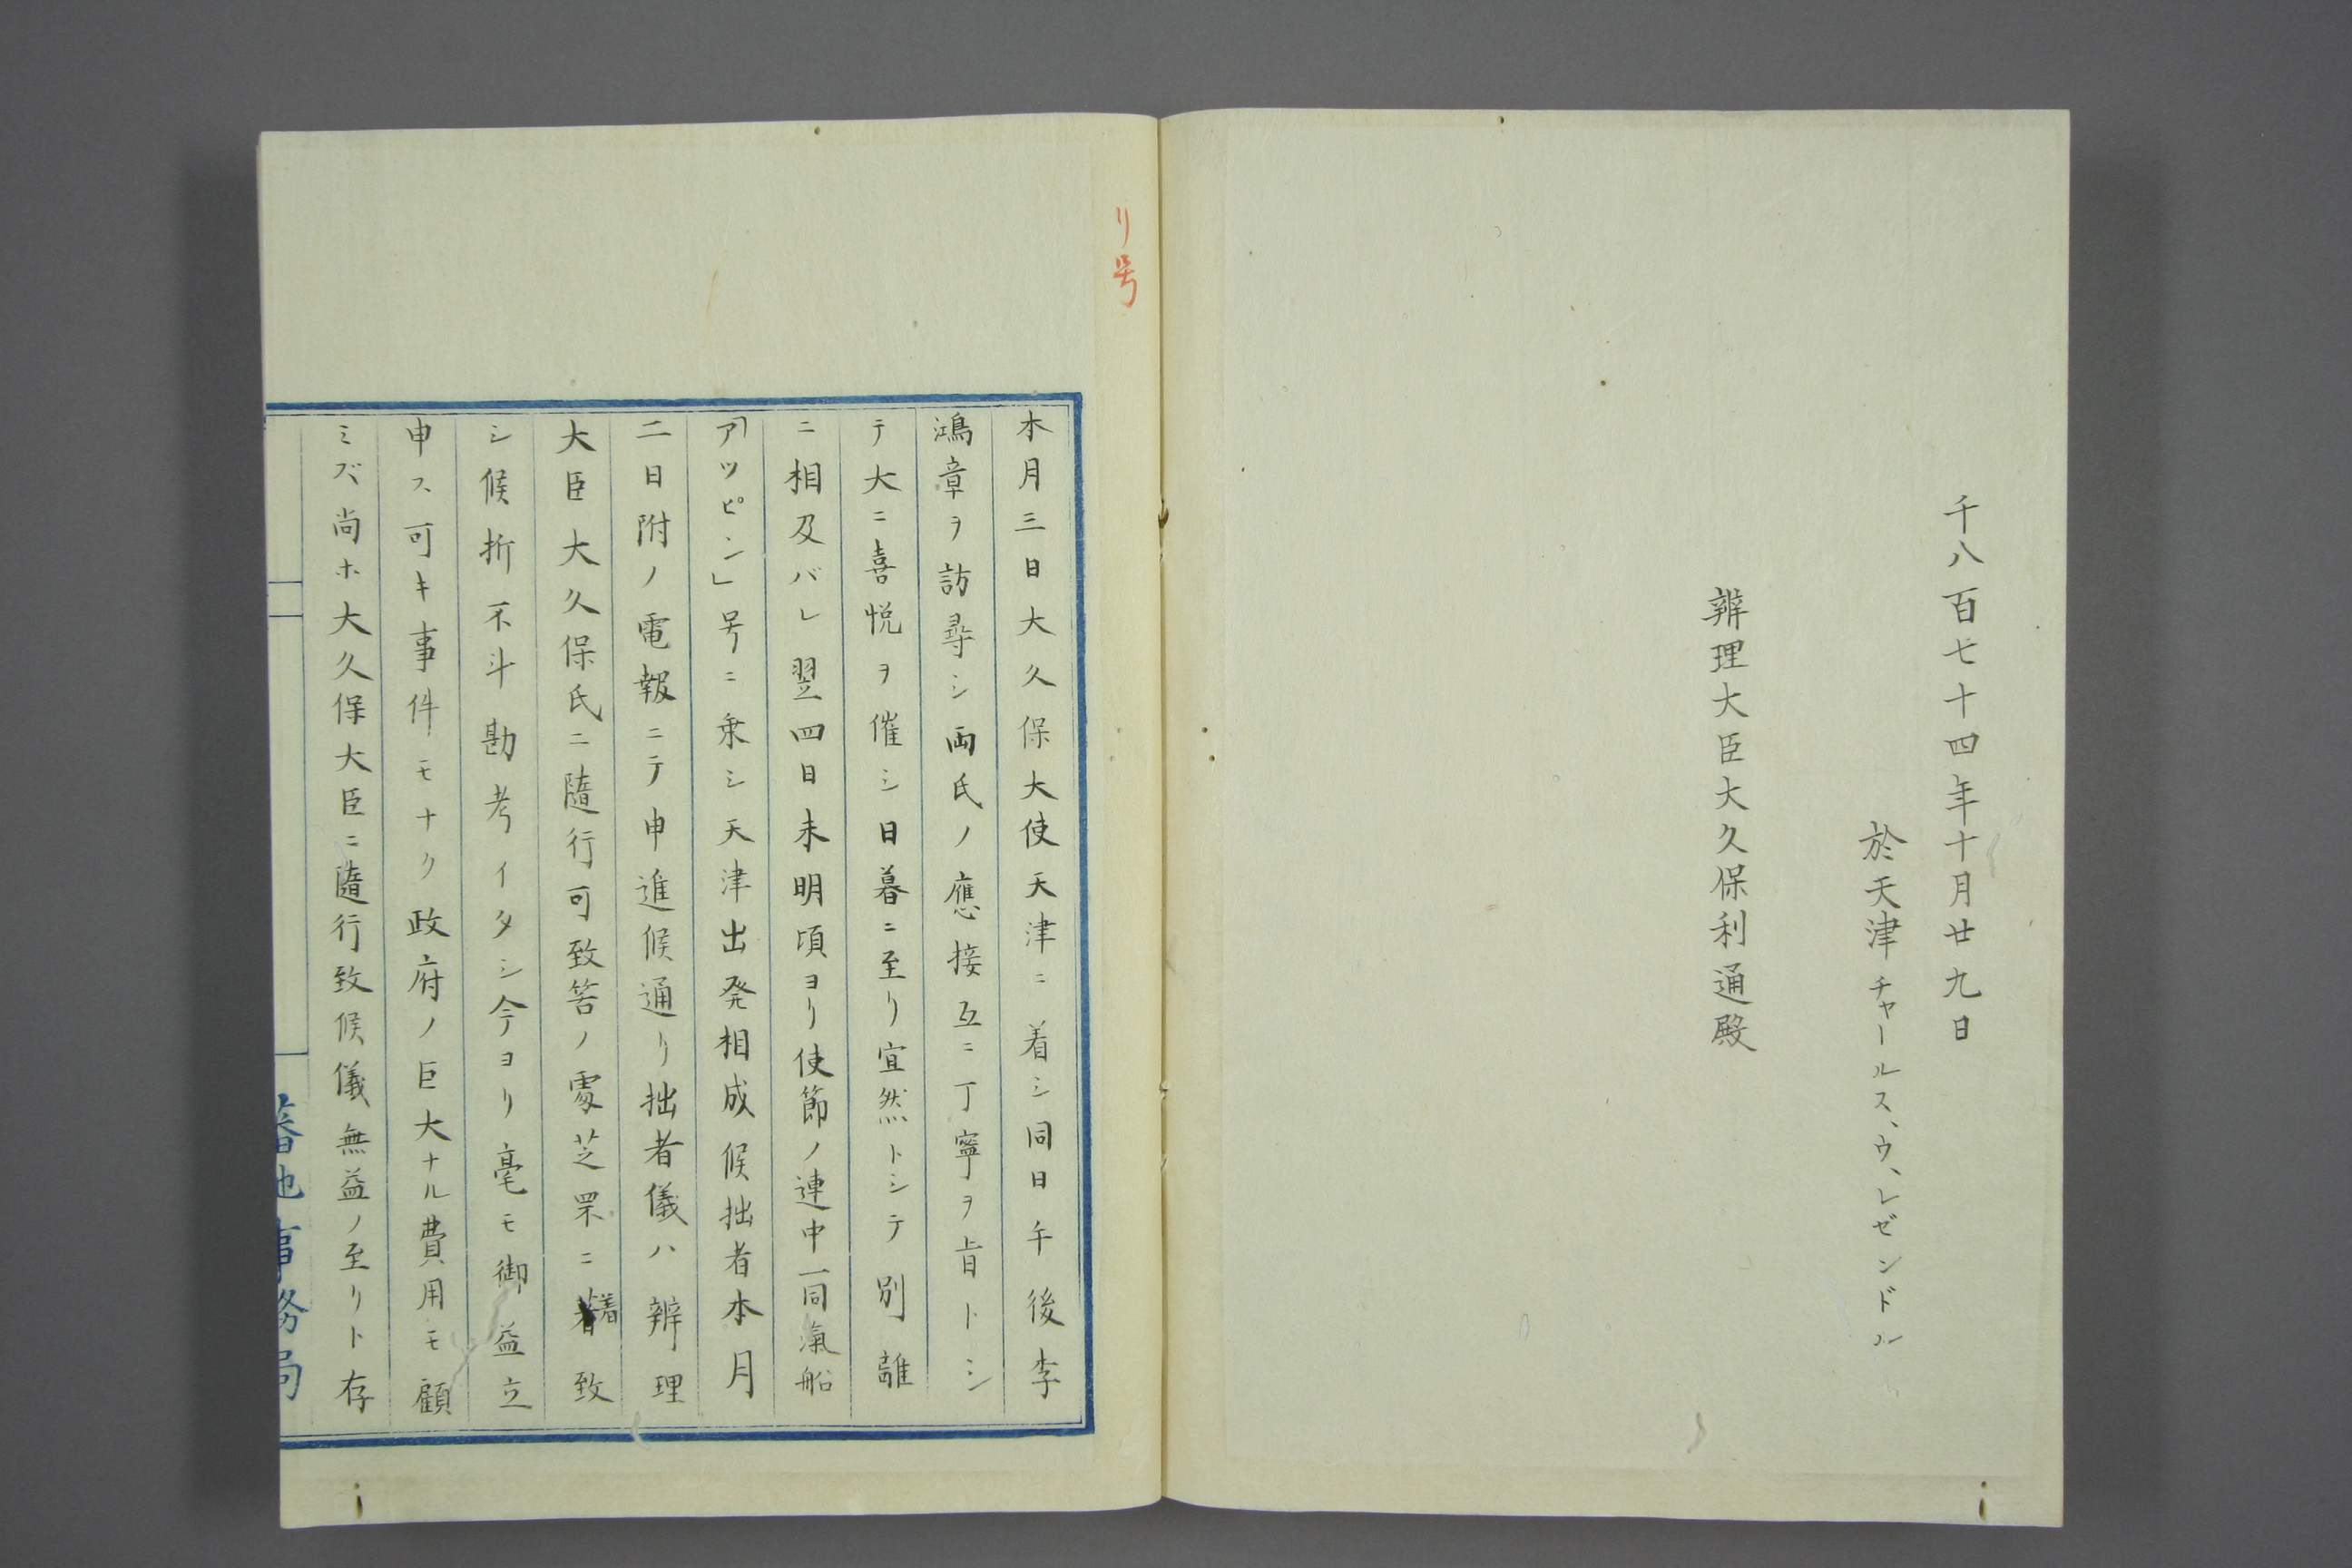 千八百七十四年十月廿九日
於天津チャールス、ウ、レゼンドル
辨理大臣大久保利通殿
リ号
本月三日大久保大使天津ニ着シ同日午後李
鴻章ヲ訪尋シ両氏ノ應接互ニ丁寧ヲ旨トシ
テ大ニ喜悦ヲ催シ日暮ニ至リ宜然トシテ別離
ニ相及バレ翌四日未明頃ヨリ使節ノ連中一同滊船
「アツピン」号ニ乗シ天津出発相成候拙者本月
二日附ノ電報ニテ申進候通リ拙者儀ハ辨理
大臣大久保氏ニ隨行可致筈ノ處芝罘ニ着致
シ候折不斗勘考イタシ今ヨリ毫モ御益立
申ス可キ事件モナク政府ノ巨大ナル費用モ顧
ミズ尚ホ大久保大臣ニ隨行致候儀無益ノ至リト存
蕃地事務局